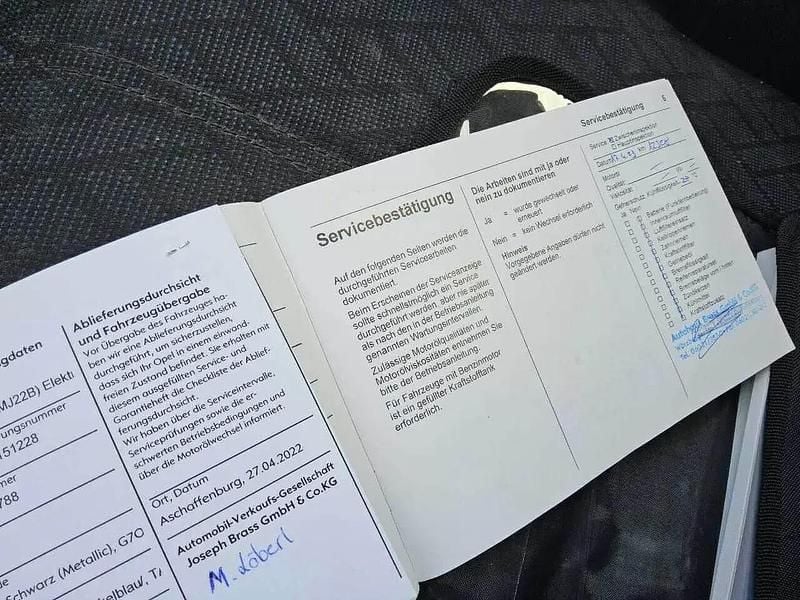 gdaten
MJ22B) Elekt
ungsnummer
151228
mer
788
de
Schwarz (Metallic), G7O
kelblau, T/
Ablieferungsdurchsicht
und Fahrzeugübergabe
Vor Übergabe des Fahrzeuges ha-
ben wir eine Ablieferungsdurchsicht
durchgeführt, um sicherzustellen,
dass sich Ihr Opel in einem einwand-
freien Zustand befindet. Sie erhalten mit
diesem ausgefüllten Service- und
Garantieheft die Checkliste der Ablief-
erungsdurchsicht.
Wir haben über die Serviceintervalle,
Serviceprüfungen sowie die er-
schwerten Betriebsbedingungen und
über die Motorölwechsel informiert.
Ort, Datum
Aschaffenburg, 27.04.2022
Automobil-Verkaufs-Gesellschaft
Joseph Brass GmbH & Co.KG
M. Löberl
Servicebestätigung
Auf den folgenden Seiten werden die
durchgeführten Servicearbeiten
dokumentiert.
Beim Erscheinen der Serviceanzeige
sollte schnellstmöglich ein Service
durchgeführt werden, aber nie später
als nach den in der Betriebsanleitung
genannten Wartungsintervallen.
Zulässige Motorölqualitäten und
Motorölviskositäten entnehmen Sie
bitte der Betriebsanleitung.
Für Fahrzeuge mit Benzinmotor
ist ein gefüllter Kraftstofftank
erforderlich.
Die Arbeiten sind mit ja oder
nein zu dokumentieren
Ja = wurde gewechselt oder
erneuert
Nein = kein Wechsel erforderlich
Hinweis
Vorgegebene Angaben dürfen nicht
geändert werden.
Servicebestätigung 5
Service Zwischeninspektion
Hauptinspektion
Datum km
Motoröl
Qualität
Viskosität
Gefrierschutz, Kühlflüssigkeit
Ja Nein
Batterie (Funkfernbedienung)
Innenraumluftfilter
Luftfiltereinsatz
Keilrippenriemen
Zahnriemen
Kraftstofffilter
Getriebeöl
Bremsflüssigkeit
Reifenreparaturset
Bremsbeläge vorn / hinten
Zündkerzen
Kühlmittel
Kraftstoffzusatz